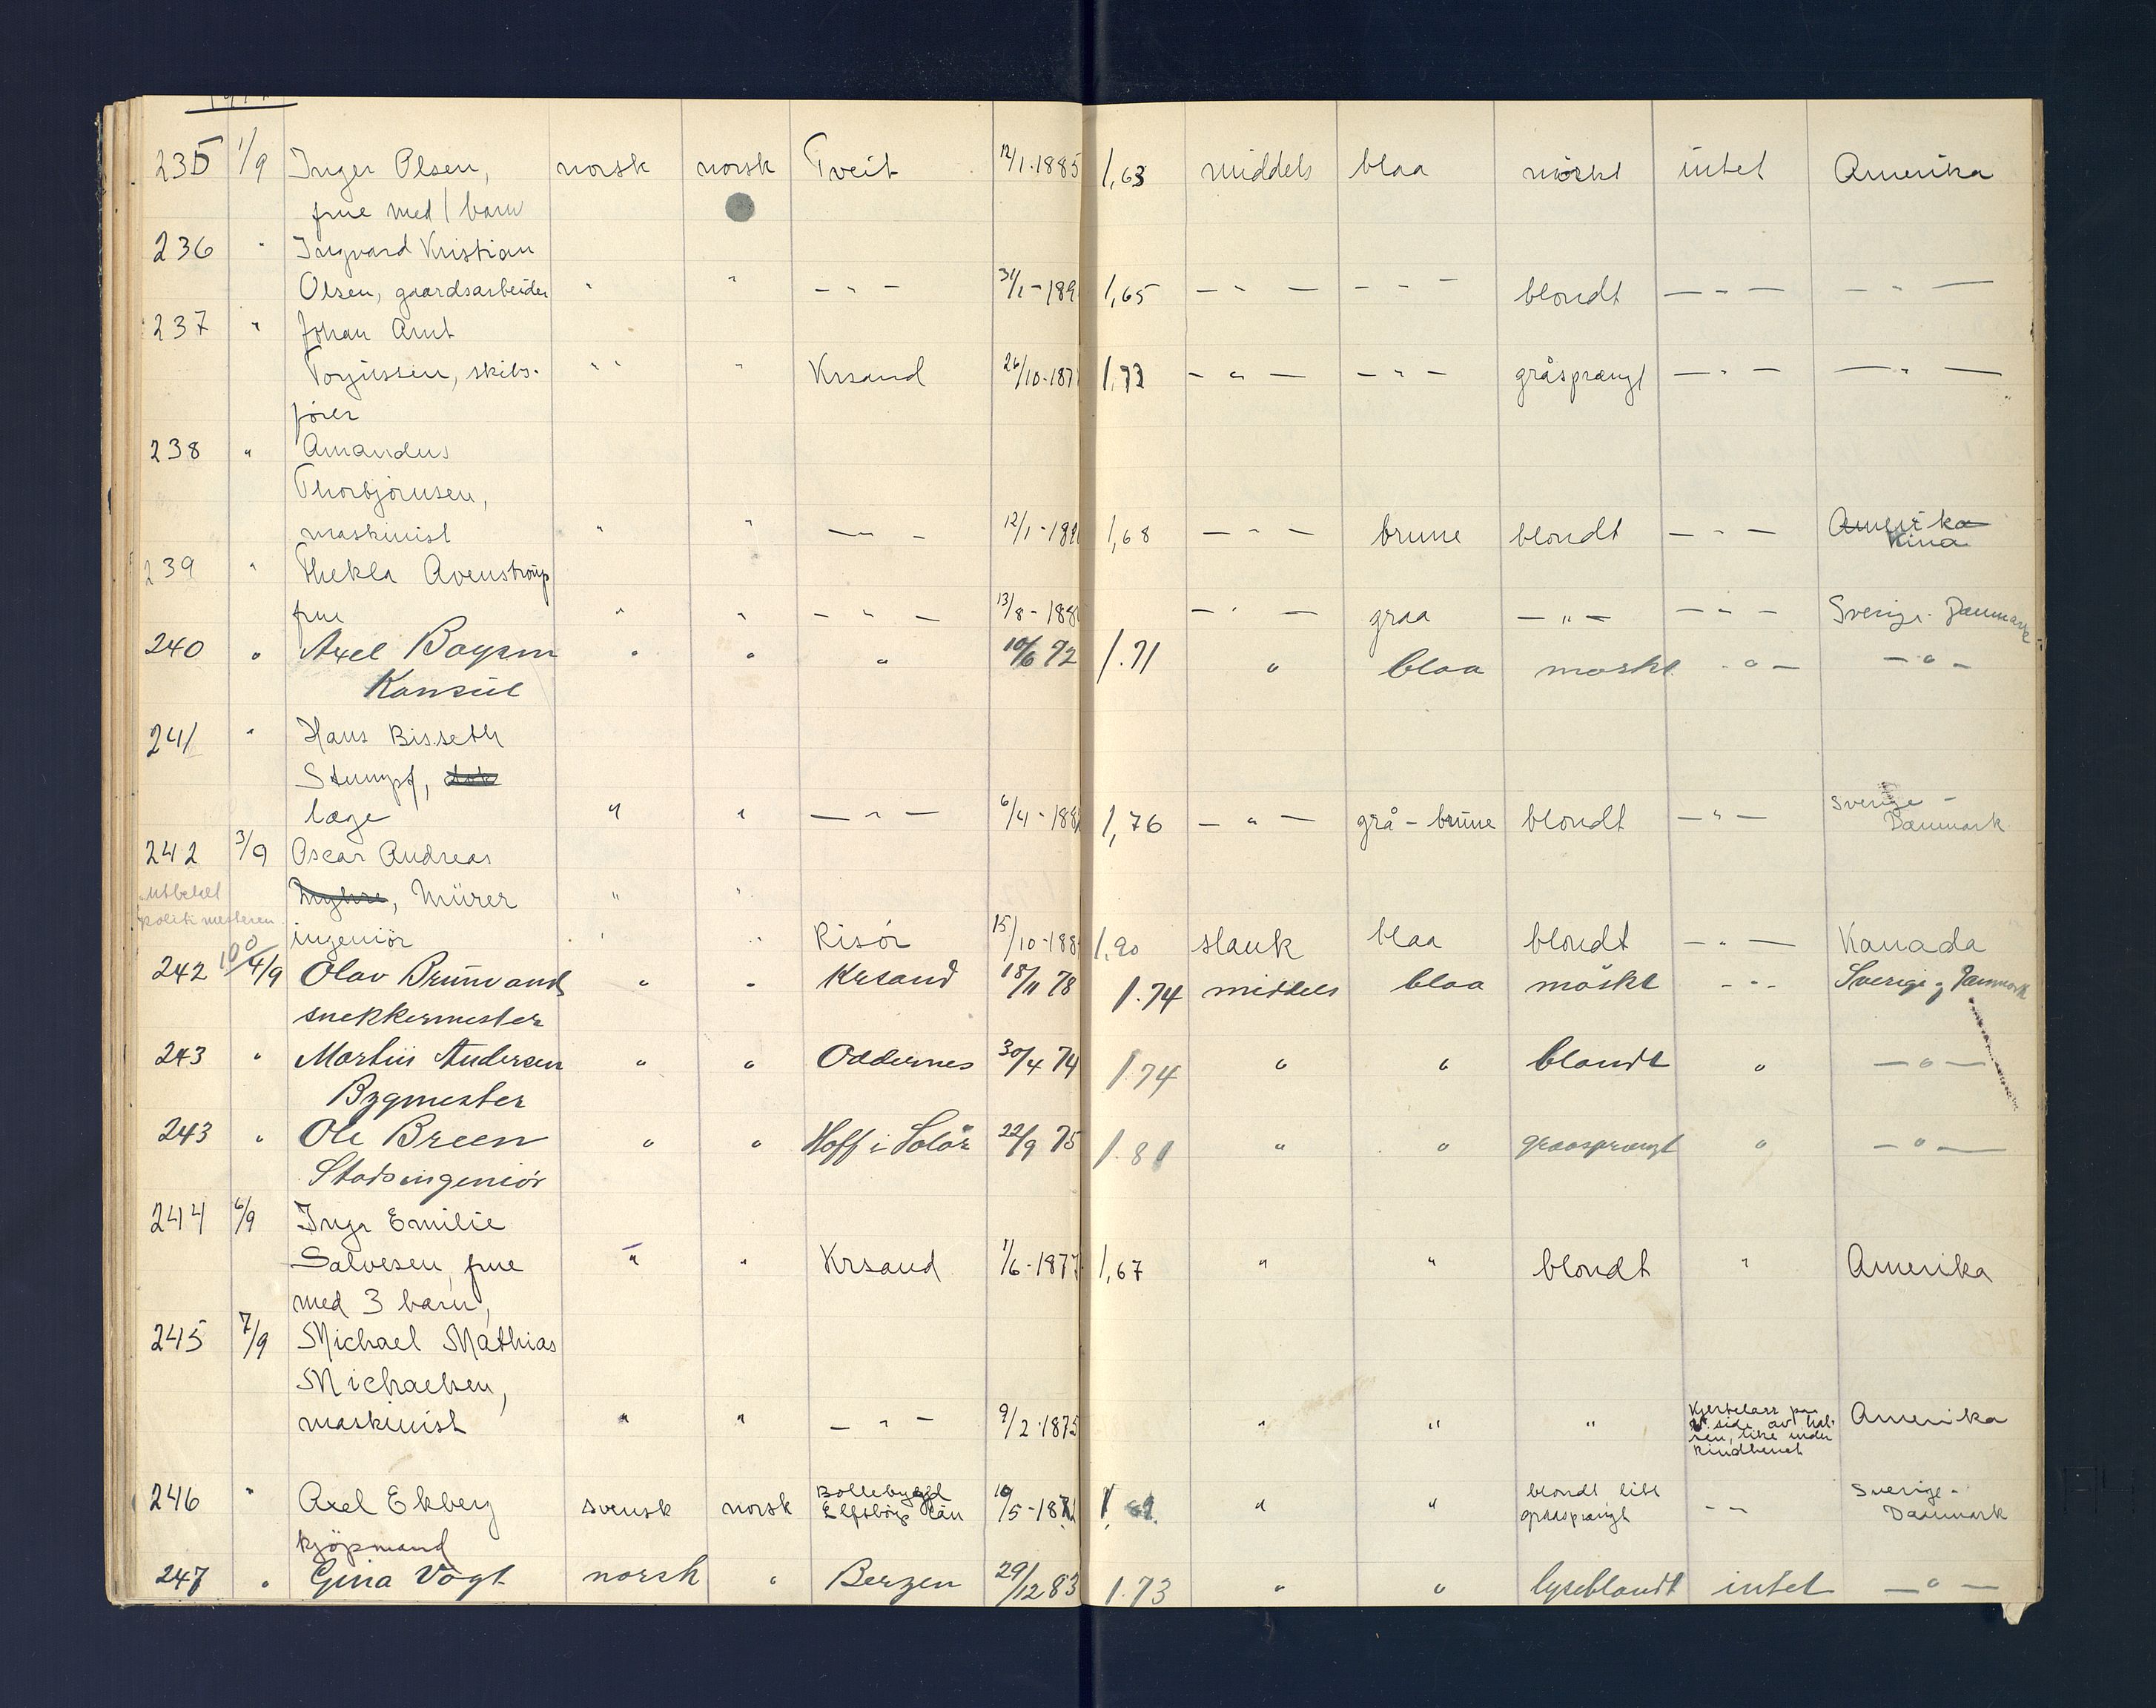 235 1/9 Inger Olsen, norsk norsk Tveit 12/1-1885 1,63 middels blaa mørkt intet Amerika
frue med 1 barn
236 " Ingvard Kristian
Olsen, gaardsarbeider " " — " — 31/1-189 1,65 — " — — " — blondt — " — — " —
237 " Johan Arnt
Torjussen, skibs- " " " Krsand 26/10-187 1,73 — " — — " — gråsprængt — " — — " —
fører
238 " Amandus
Thorbjørnsen,
maskinist " " — " — 12/1-189 1,68 — " — brune blondt — " — Amerika
Kina
239 " Thekla Avenstroup
frue " " — " — 13/8-188 — " — graa — " — — " — Sverige-Danmark
240 " Axel Boysen " " " 10/6 72 1.71 " blaa mørkt - " - - " -
Konsul
241 " Hans Bisseth
Stumpf, dok
læge " " — " — 6/4-188 1,76 — " — grå-brune blondt — " — Sverige-
Danmark
242 3/9 Oscar Andreas
utbetalt Myhre, Mürer " "
politimesteren
ingeniør " " Risør 15/10-188 1,80 slank blaa blondt — " — Kanada
242 10/0 4/9 Olav Brunvand " " Krsand 18/11 78 1.74 middels blaa mørkt - " - Sverige og Danmark
snekkermester
243 " Martin Andersen " " Oddernes 30/4 74 1.74 " " blondt " — " —
Bygmester
243 " Ole Breen " " Hoff i Solør 22/9 75 1.81 " " graasprængt " — " —
Stadsingeniør
244 6/9 Inga Emilie
Salvesen, frue " " Krsand 1/6-1877 1,67 " " blondt " Amerika
med 3 barn,
245 7/9 Michael Mathias
Michaelsen,
maskinist " " — " — 9/2-1875 " " " Kjertelarr paa Amerika
v. side av hal-
sen, like under
kindbenet
246 " Axel Ekberg svensk norsk Bollebygd 10/5-187 1, " " blondt litt - - Sverige-
Elfsborgs län graasprængt Danmark
kjøpmand
247 " Gina Vogt norsk " Bergen 29/12 83 1.73 " " lyseblondt intet — " —